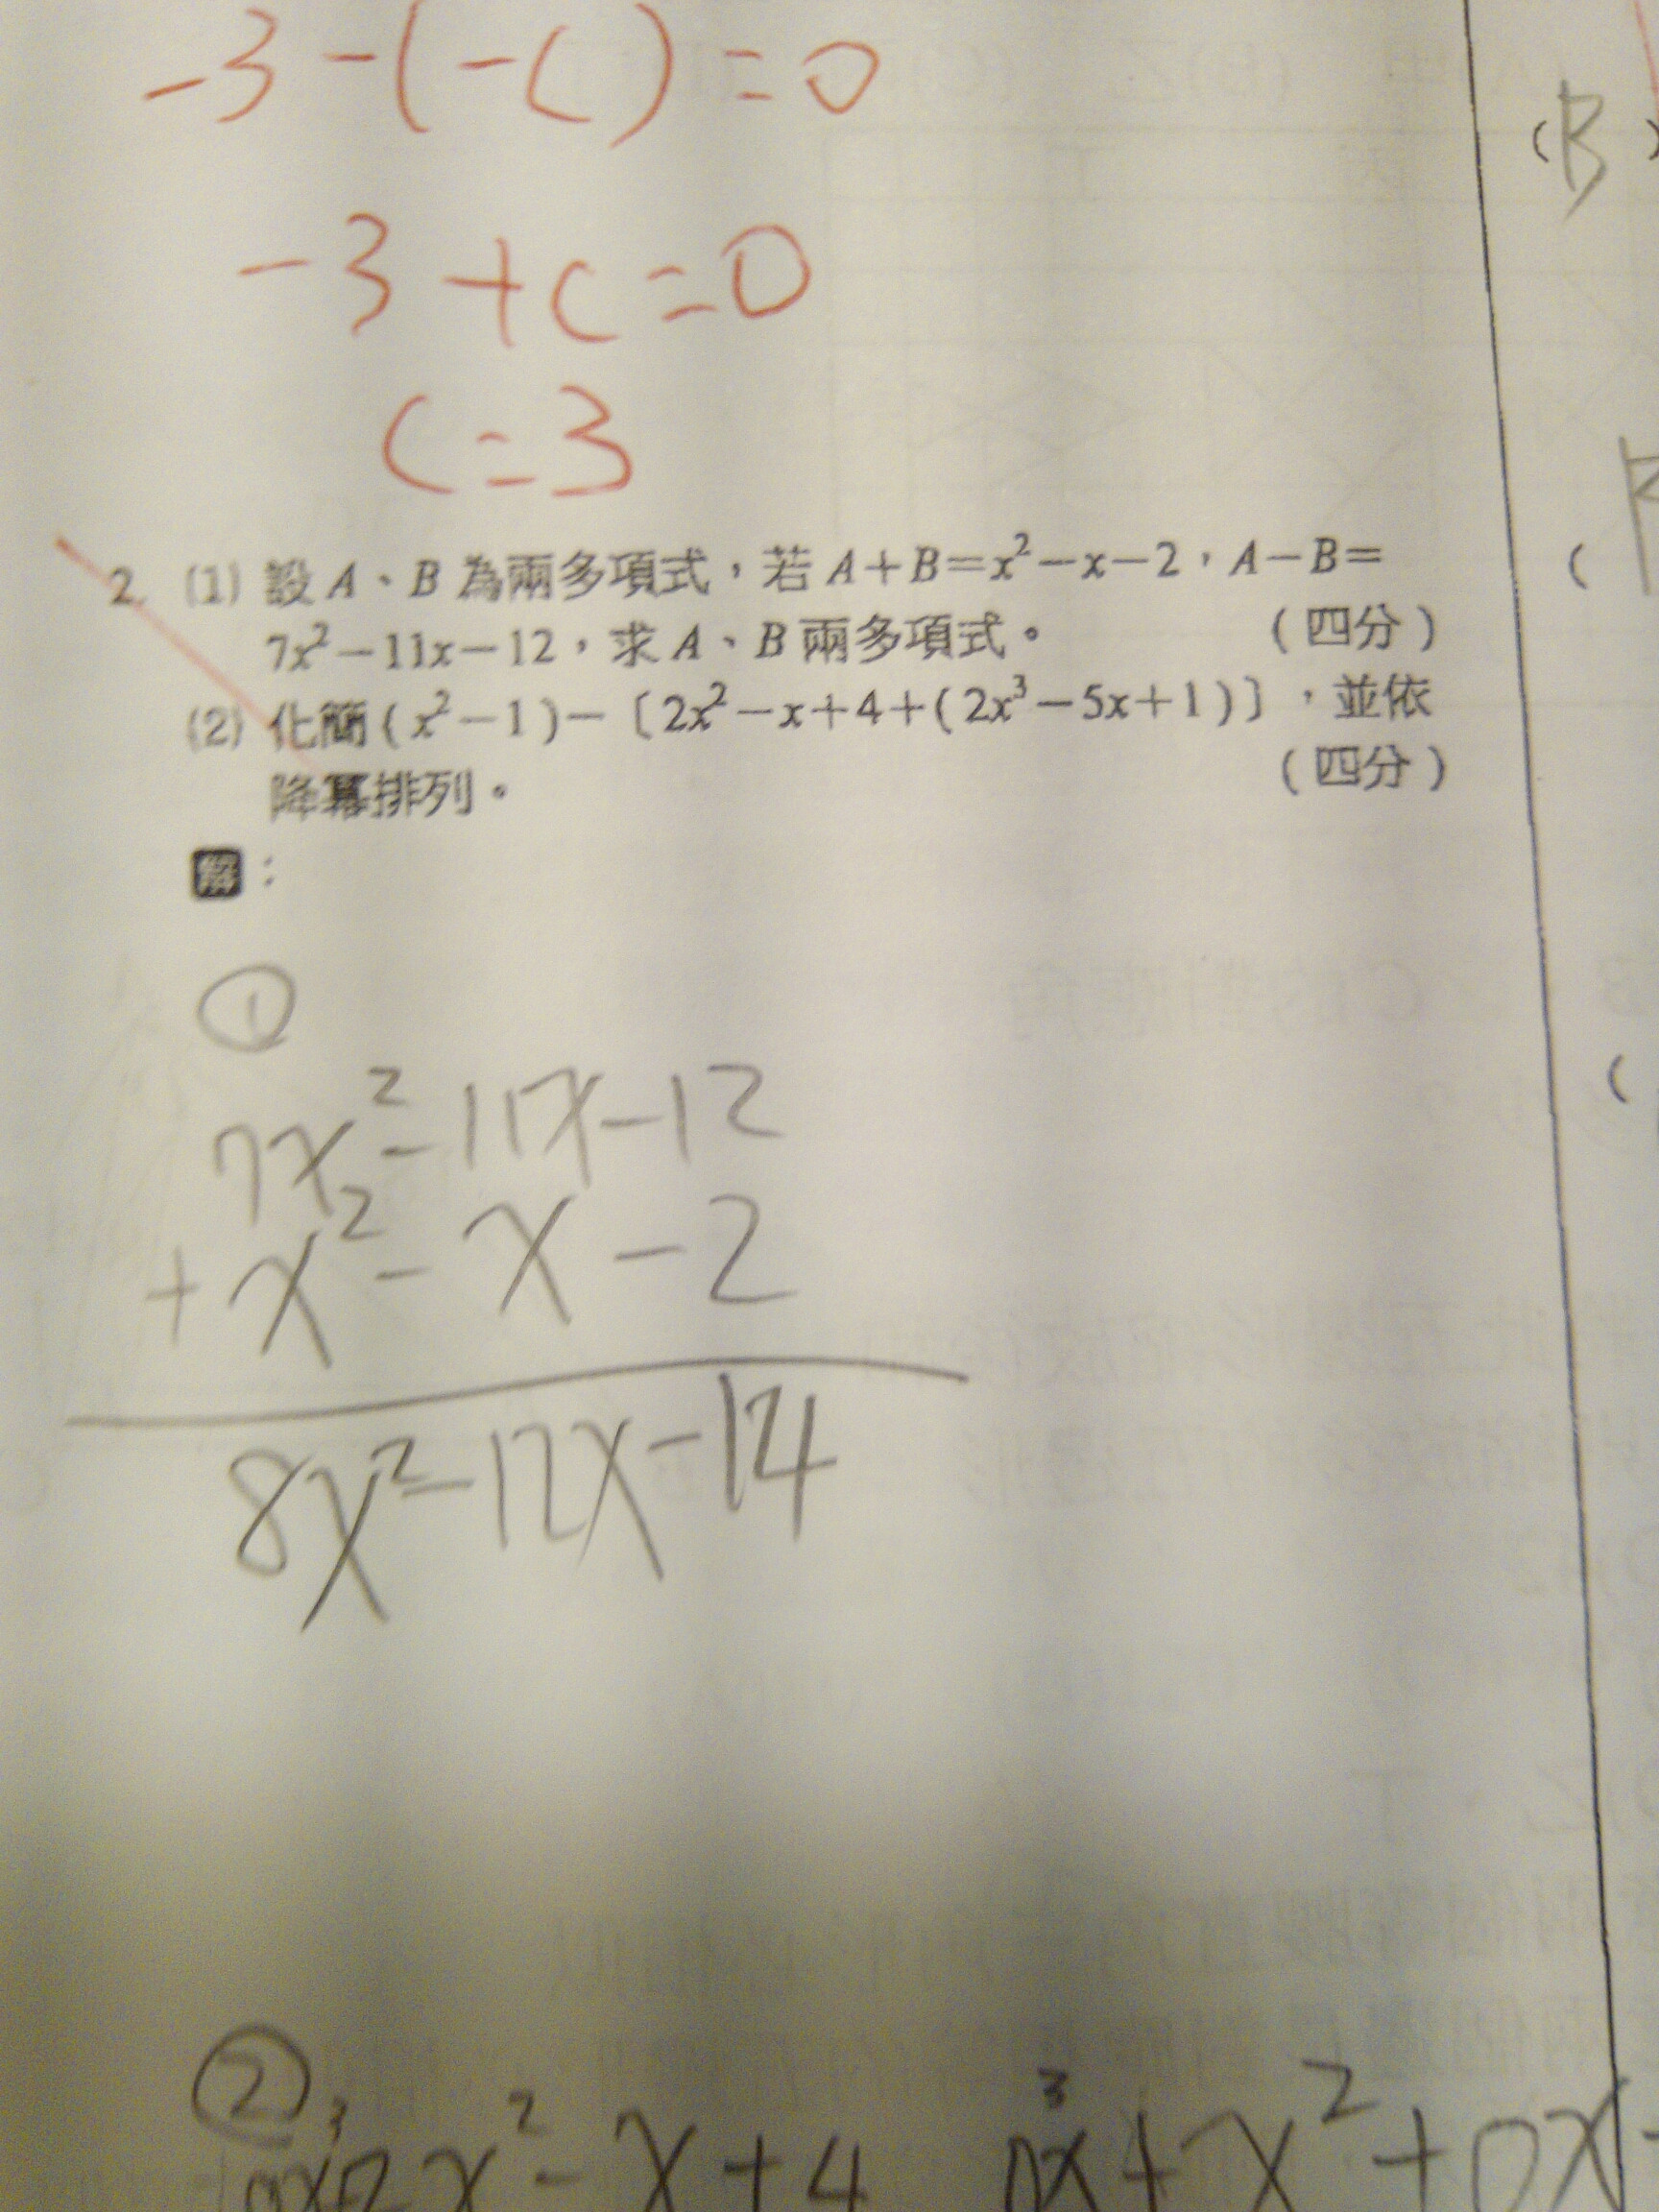 -3-(-c)=0
-3+c=0
c=3
2. (1) 設 A、B 為兩多項式，若 A+B=x²-x-2，A-B=
7x²-11x-12，求 A、B 兩多項式。 （四分）
(2) 化簡(x²-1)-〔2x²-x+4+(2x³-5x+1)〕，並依
降冪排列。 （四分）
解：
①
7x²-11x-12
+x²-x-2
8x²-12x-14
②
0x³+2x²-x+4 0x³+x²+0x-
(B)
(
(